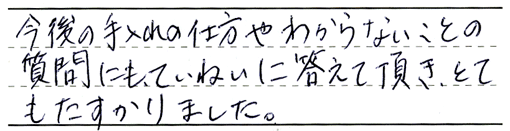 今後の手入れの仕方やわからないことの
質問にも、ていねいに答えて頂き、とて
もたすかりました。